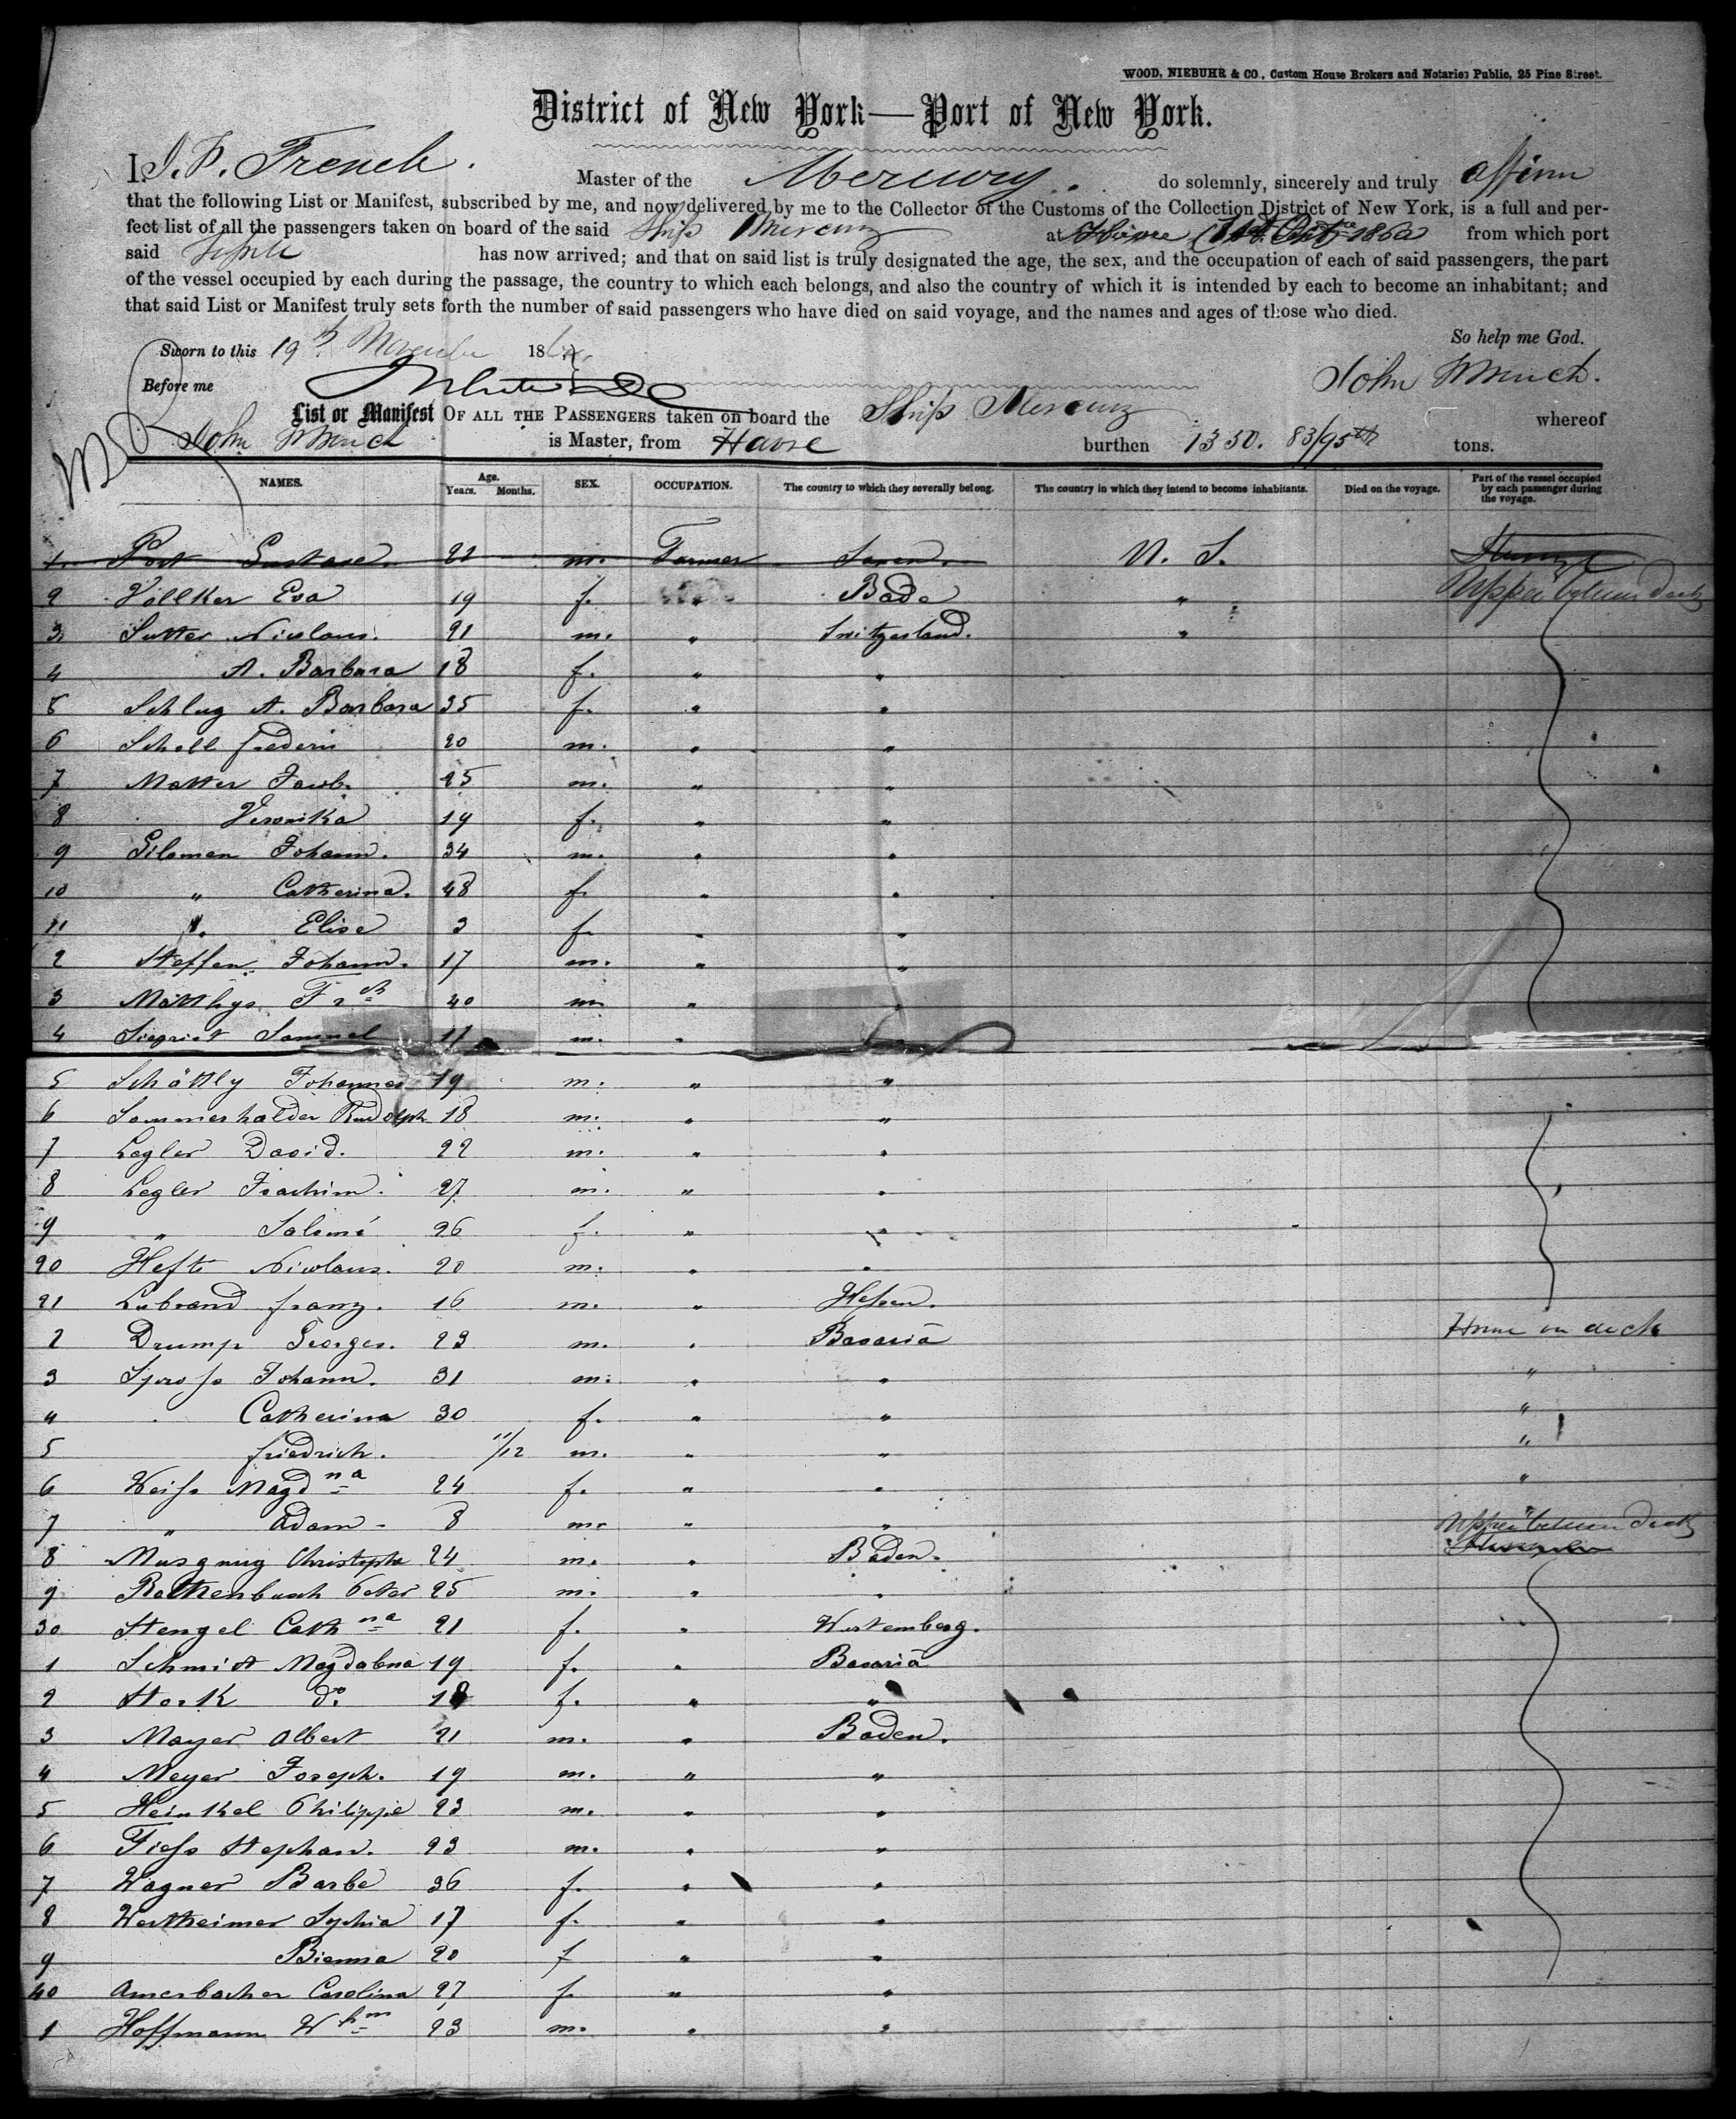 WOOD, NIEBUHR & CO., Custom House Brokers and Notaries Public, 25 Pine Street.
District of New York—Port of New York.
I, French. Master of the Mercury. do solemnly, sincerely and truly affirm
that the following List or Manifest, subscribed by me, and now delivered by me to the Collector of the Customs of the Collection District of New York, is a full and per-
fect list of all the passengers taken on board of the said Ship Mercury at Havre 1860 from which port
said has now arrived; and that on said list is truly designated the age, the sex, and the occupation of each of said passengers, the part
of the vessel occupied by each during the passage, the country to which each belongs, and also the country of which it is intended by each to become an inhabitant; and
that said List or Manifest truly sets forth the number of said passengers who have died on said voyage, and the names and ages of those who died.
So help me God.
Sworn to this 19th November 18
Before me John
List or Manifest OF ALL THE PASSENGERS taken on board the Ship Mercury whereof
John is Master, from Havre burthen 1350. 83/95th tons.
NAMES. Age. Years. Months. SEX. OCCUPATION. The country to which they severally belong. The country in which they intend to become inhabitants. Died on the voyage. Part of the vessel occupied by each passenger during the voyage.
1. Gustave. 22 m. Farmer U. S.
2 Vollker Eva 19 f. " Bade " Upper between deck
3 Sutter Nicolaus. 21 m. " Switzerland. "
4 A. Barbara 18 f. " "
5 Schlug A. Barbara 35 f. " "
6 Scholl frederic 20 m. " "
7 Matter Jacob. 25 m. " "
8 Veronika 19 f. " "
9 Gilomen Johann. 34 m. " "
10 " Catherina. 48 f. " "
11 " Elise 3 f. " "
2 Steffen Johann. 17 m. " "
3 Matthys Frch 40 m. " "
4 Siegrist Samuel 17 m. "
5 Schättly Johannes 19 m. " "
6 Sommerhalder Rudolph 18 m. " "
7 Legler David. 22 m. " "
8 Legler Joachim. 27 m. " "
9 " Salomé 26 f. " "
20 Hefti Nicolaus. 20 m. " "
21 Lubrand franz. 16 m. " Hessen.
2 Drumps Georges. 23 m. " Bavaria House on deck
3 Spross Johann. 31 m. " " "
4 Catherina 30 f. " " "
5 friedrich. 11/12 m. " " "
6 Weiss Magdna 24 f. " " "
7 " Adam - 8 m. " " "
Upper between deck
8 Musgnug Christoph 24 m. " Baden.
9 Rothenbusch Peter 25 m. " "
30 Stengel Cathna 21 f. " Wurtemberg.
1 Schmidt Magdalena 19 f. " Bavaria
2 Stork do 18 f. " "
3 Mayer Albert 21 m. " Baden.
4 Meyer Joseph. 19 m. " "
5 Heinkel Philippe 23 m. " "
6 Fiess Stephan. 23 m. " "
7 Wagner Barbe 36 f. " "
8 Wertheimer Sophia 17 f. " "
9 20 f " "
40 Amerbacher Carolina 27 f. " "
1 Hoffmann Whm 23 m. " "